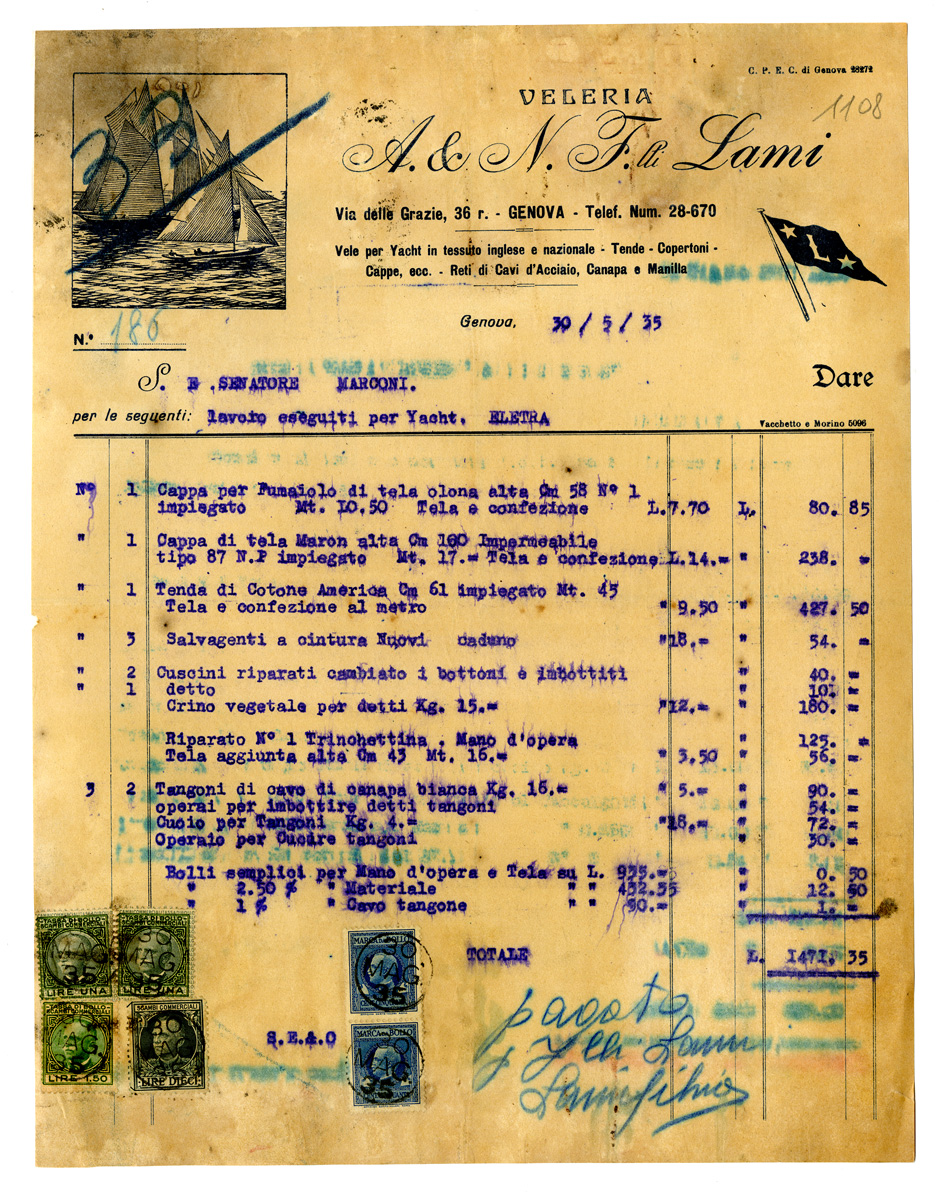 C. P. E. C. di Genova 28272
1108
VELERIA
A. & N. F.lli Lami
33
Via delle Grazie, 36 r. - GENOVA - Telef. Num. 28-670
Vele per Yacht in tessuto inglese e nazionale - Tende - Copertoni -
Cappe, ecc. - Reti di Cavi d'Acciaio, Canapa e Manilla
L
Genova, 30 / 5 / 35
N.° 186
S. E .SENATORE MARCONI. Dare
per le seguenti: lavoro eseguiti per Yacht. ELETRA
Vacchetto e Morino 5096
N° 1 Cappa per Fumaiolo di tela olona alta Cm 58 N° 1
impiegato Mt. 10.50 Tela e confezione L.7.70 L. 80. 85
" 1 Cappa di tela Maron alta Cm 160 Impermeabile
tipo 87 N.P impiegato Mt. 17.= Tela e confezione L.14.= " 238. =
" 1 Tenda di Cotone America Cm 61 impiegato Mt. 45
Tela e confezione al metro " 9.50 " 427. 50
" 3 Salvagenti a cintura Nuovi caduno "18.= " 54. =
" 2 Cuscini riparati cambiato i bottoni e imbottiti " 40. =
" 1 detto " 10. =
Crino vegetale per detti Kg. 15.= "12.= " 180. =
Riparato N° 1 Trinchettina . Mano d'opera " 125. =
Tela aggiunta alta Cm 43 Mt. 16.= " 3,50 " 56. =
3 2 Tangoni di cavo di canapa bianca Kg. 18.= " 5.= " 90. =
operai per imbottire detti tangoni " 54. =
Cuoio per Tangoni Kg. 4.= "18.= " 72. =
Operaio per Cucire tangoni " 30. =
Bolli semplici per Mano d'opera e Tela su L. 935.= " 0. 50
" 2.50 % " Materiale " " 432.35 " 12. 50
" 1 % " Cavo tangone " " 90.= " 1. =
TOTALE L. 1471. 35
TASSA DI BOLLO
SCAMBI COMMERCIALI
LIRE UNA
TASSA DI BOLLO
SCAMBI COMMERCIALI
LIRE UNA
30
MAG
35
MARCA DA BOLLO
30
MAG
35
LIRE 1.50
SCAMBI COMMERCIALI
LIRE DIECI
MARCA DA BOLLO
30
MAG
35
S.E.&O
pagato
F lli Lami
Lami Silvio